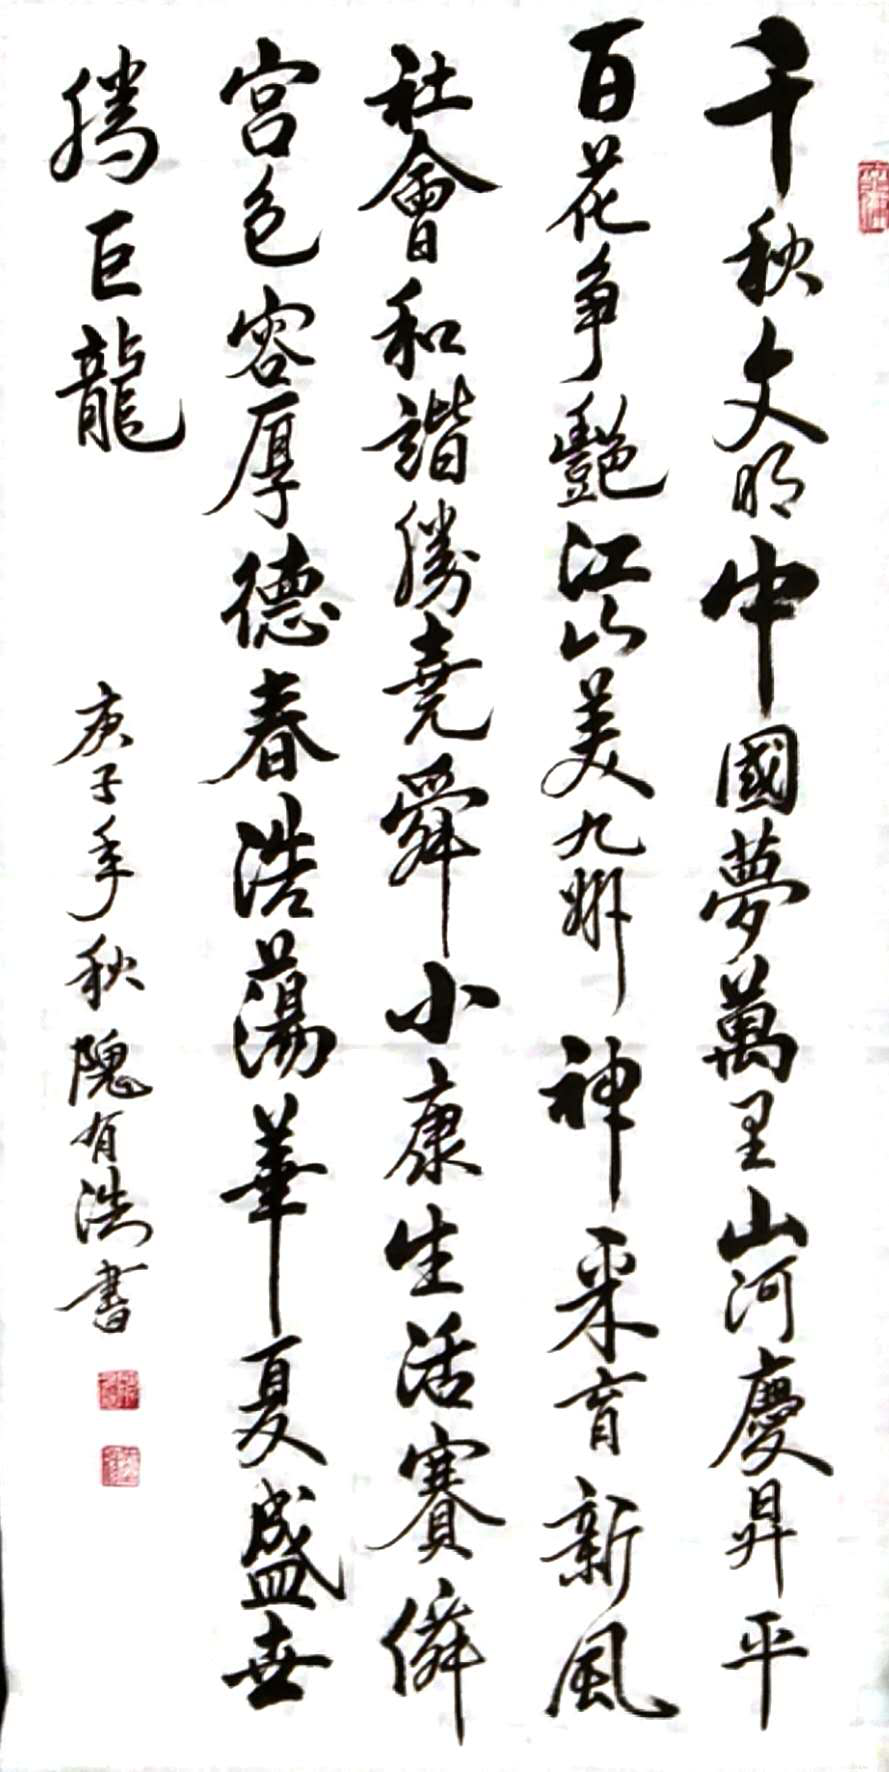 千秋文明中國夢萬里山河慶昇平
百花争艷江山美九州神采育新風
社會和諧勝堯舜小康生活賽僊
宮包容厚德春浩蕩華夏盛世
騰巨龍
庚子年秋隗有浩書